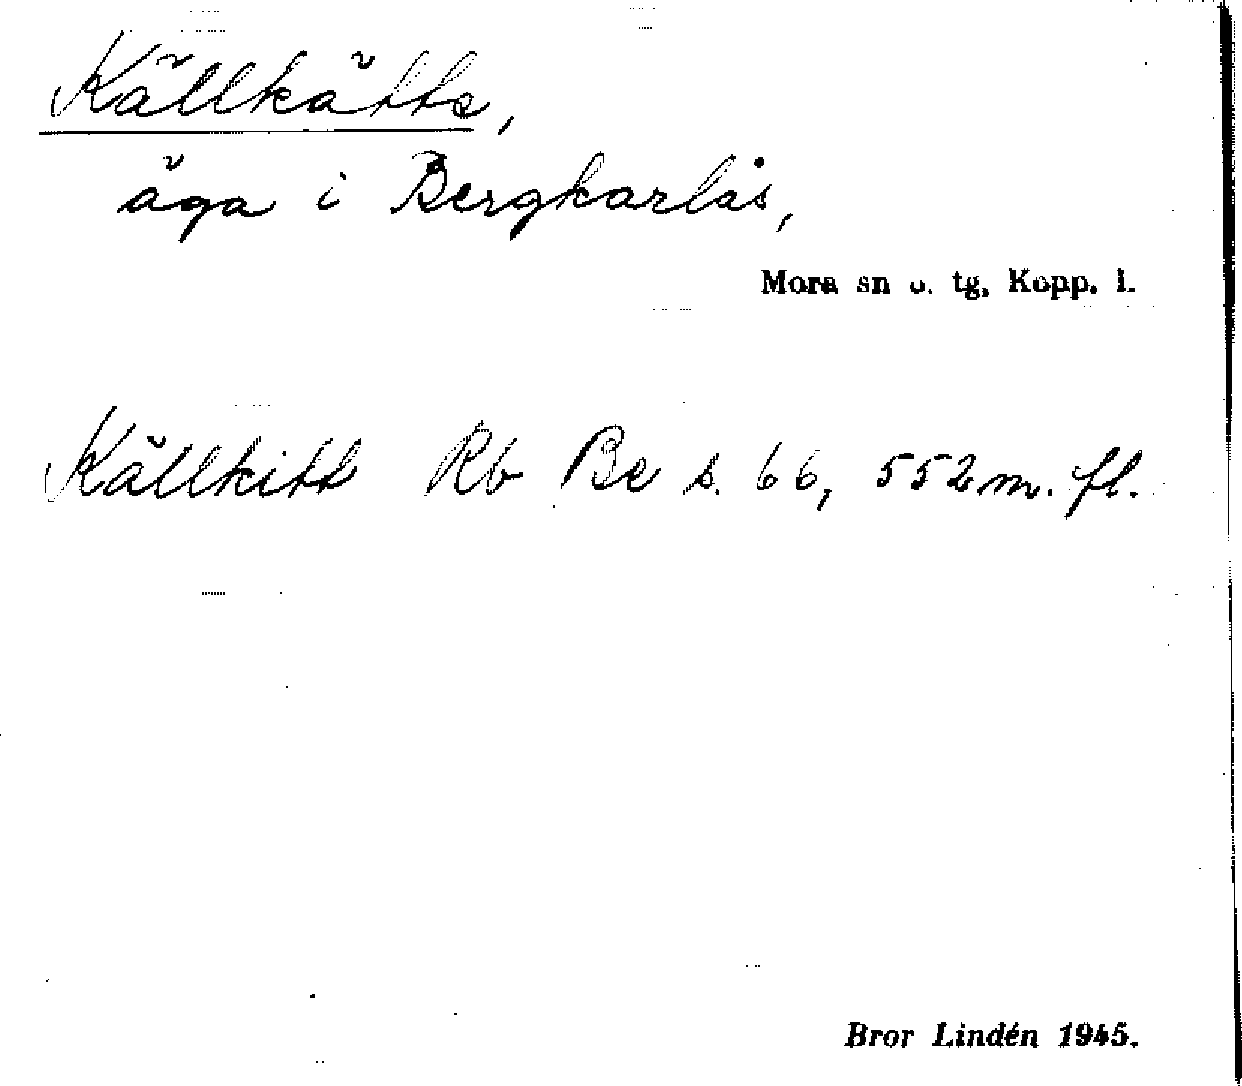 Källkätts,
äga i Bergkarlås,
Mora sn o. tg, Kopp. l.
Källkitt Rb Be s. 66, 552 m. fl.
Bror Lindén 1945.